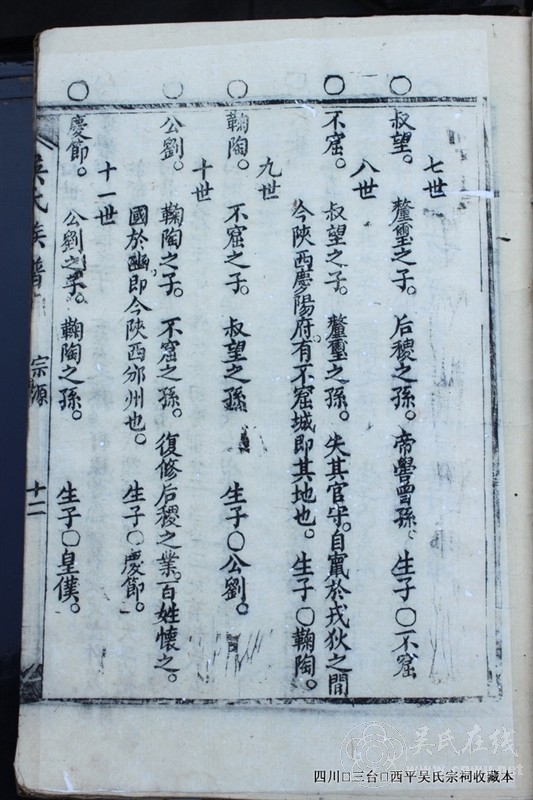 七世
○叔望。 釐璽之子。后稷之孫。帝嚳曾孫。生子○不窟
八世
○不窟。 叔望之子。釐璽之孫。失其官守。自竄於戎狄之間
今陝西慶陽府。有不窟城即其地也。生子○鞠陶。
九世
○鞠陶。 不窟之子。叔望之孫 生子○公劉。
十世
○公劉。 鞠陶之子。不窟之孫。復修后稷之業。百姓懷之。
國於豳。即今陝西邠州也。 生子○慶節。
十一世
○慶節。 公劉之子。鞠陶之孫。 生子○皇僕。
吳氏族譜 宗源 十二
吴氏在线
www.cnwu.net
四川□三台□西平吴氏宗祠收藏本